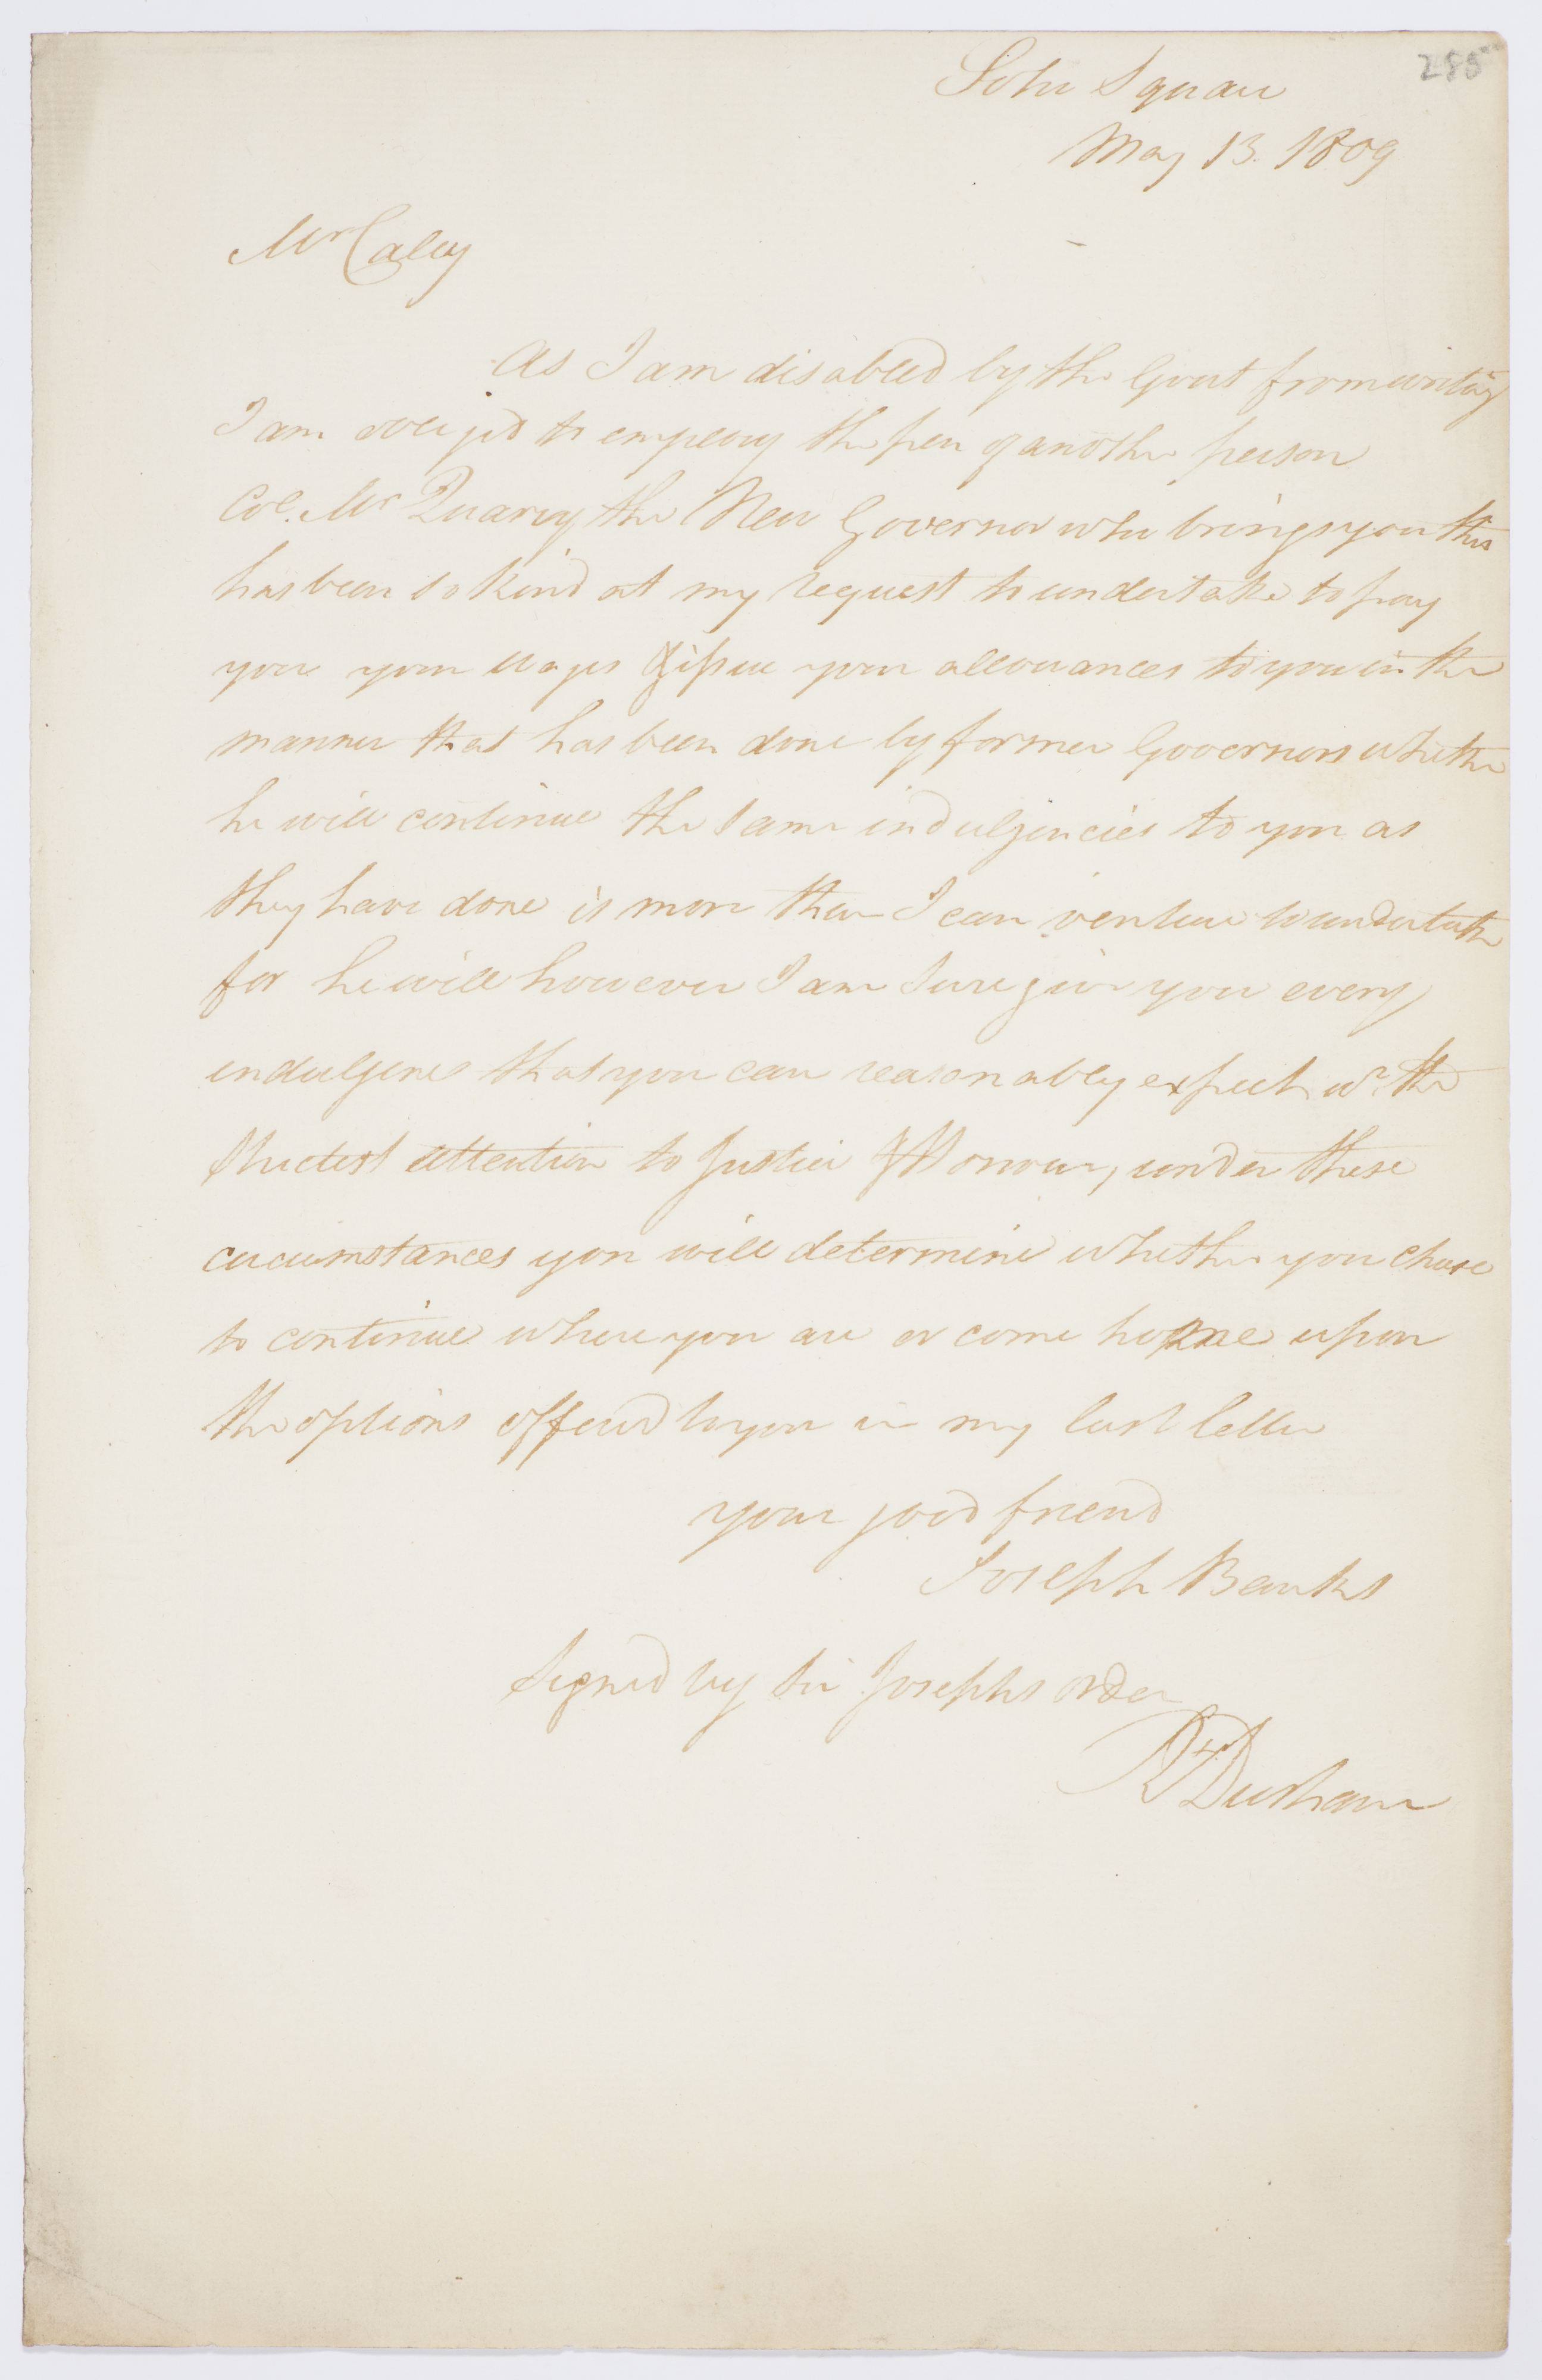 285
Soho Square
May 13. 1809
Mr Caley
As I am disabled by the Gout from writing
I am obliged to employ the pen of another person
Col. Mc Quarry the New Governor who brings you this
has been so kind at my request to undertake to pay
you your wages & issue your allowances to you in the
manner that has been done by former Governors whether
he will continue the same indulgencies to you as
they have done is more than I can venture to undertake
for he will however I am sure give you every
indulgence that you can reasonably expect wh. the
strictest attention to Justice & Honour, under these
circumstances you will determine whether you chuse
to continue where you are or come home upon
the options offered to you in my last letter
your good friend
Joseph Banks
Signed by Sir Josephs order
Rt Durham